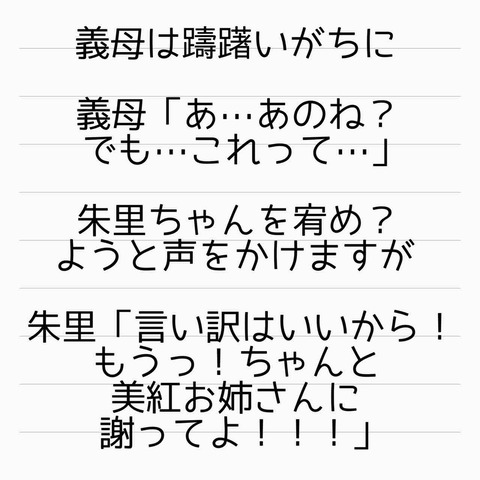 義母は躊躇いがちに
義母「あ…あのね？
でも…これって…」
朱里ちゃんを宥め？
ようと声をかけますが
朱里「言い訳はいいから！
もうっ！ちゃんと
美紅お姉さんに
謝ってよ！！！」